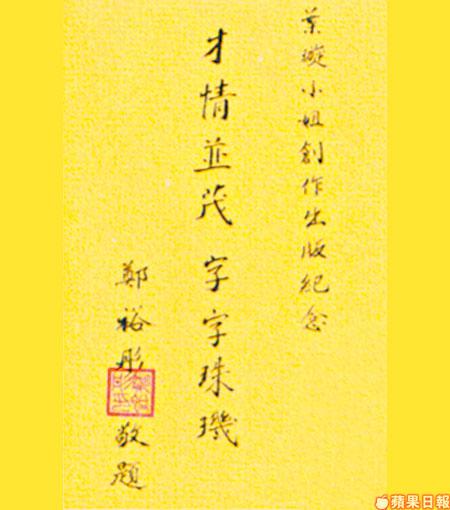 葉璇小姐創作出版紀念
才情並茂 字字珠璣
鄭裕彤 敬題
蘋果日報